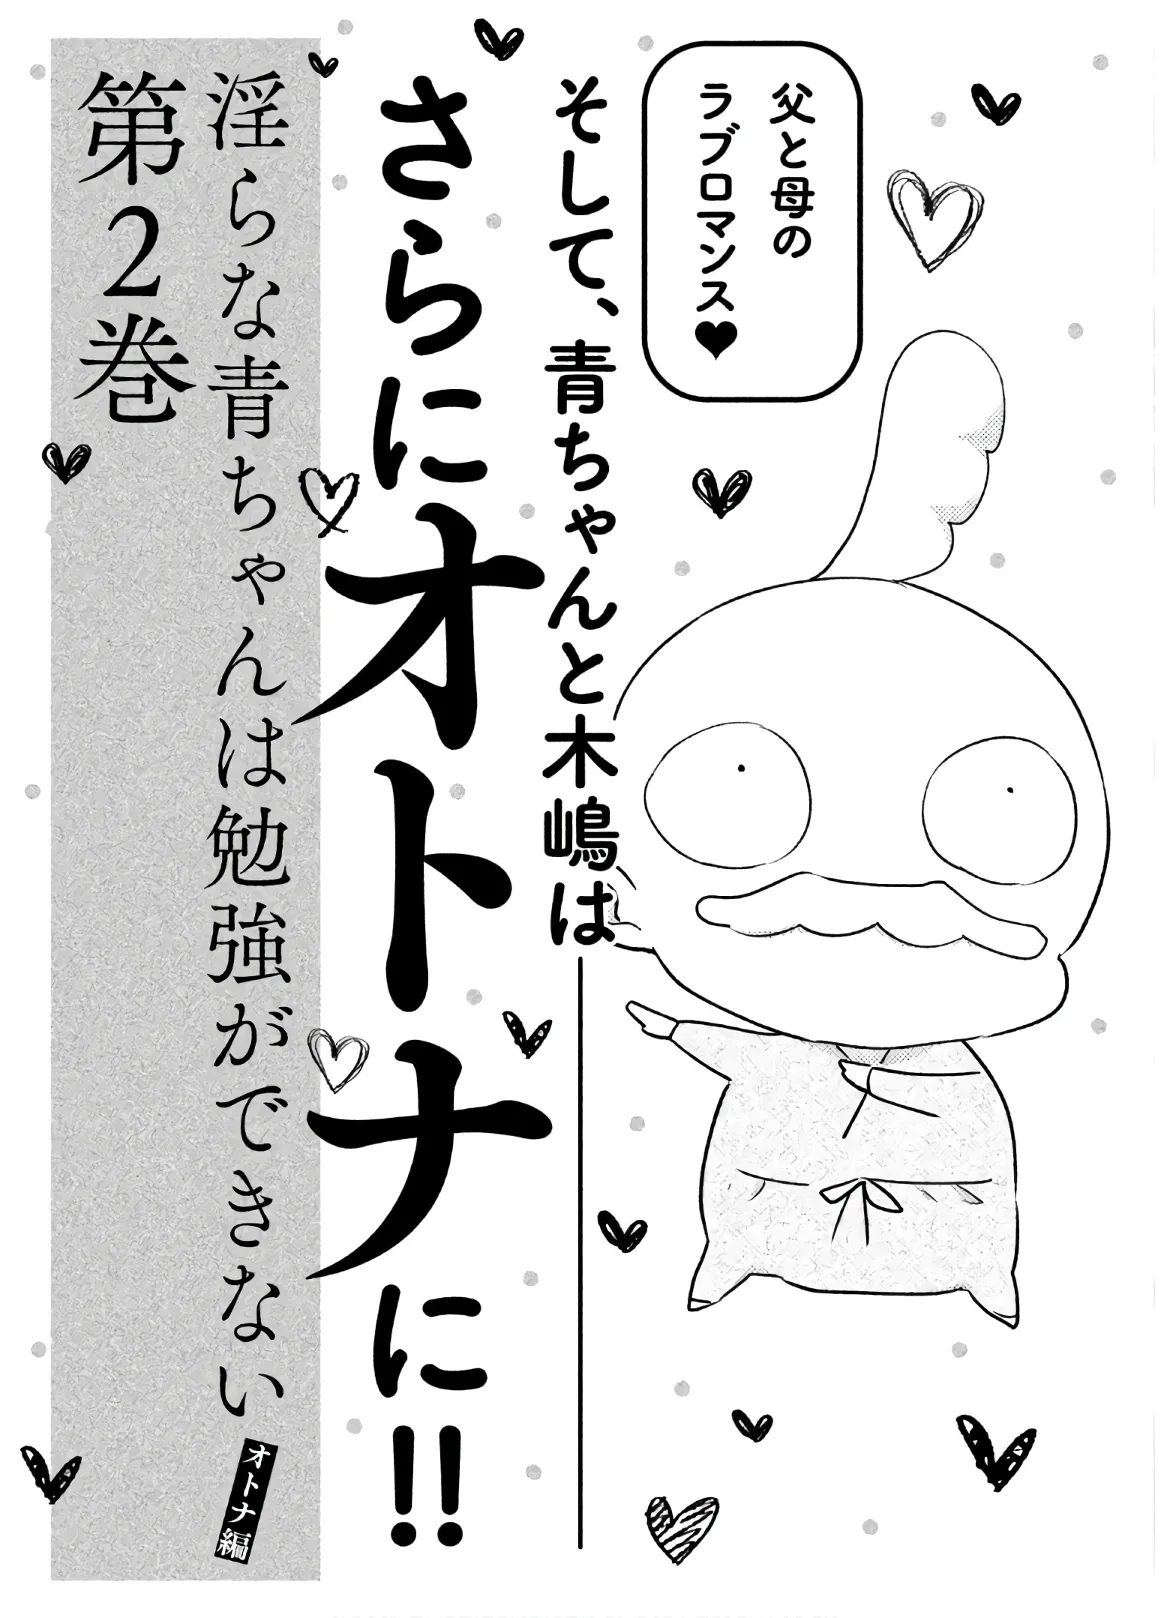 父と母の
ラブロマンス♥
そして、青ちゃんと木嶋は
さらにオトナに!!
淫らな青ちゃんは勉強ができない
オトナ編
第2巻